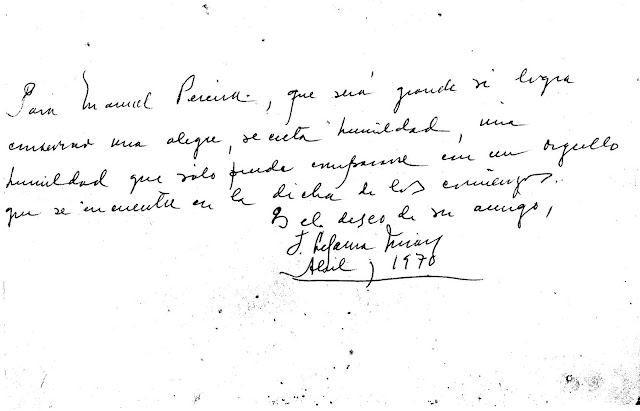 Para Manuel Pereira, que será grande si logra
conservar una alegre, secreta humildad, una
humildad que sólo puede compararse con un orgullo
que se encuentre en la dicha de los comienzos.
Es el deseo de su amigo,
J. Lezama Lima
Abril, 1970